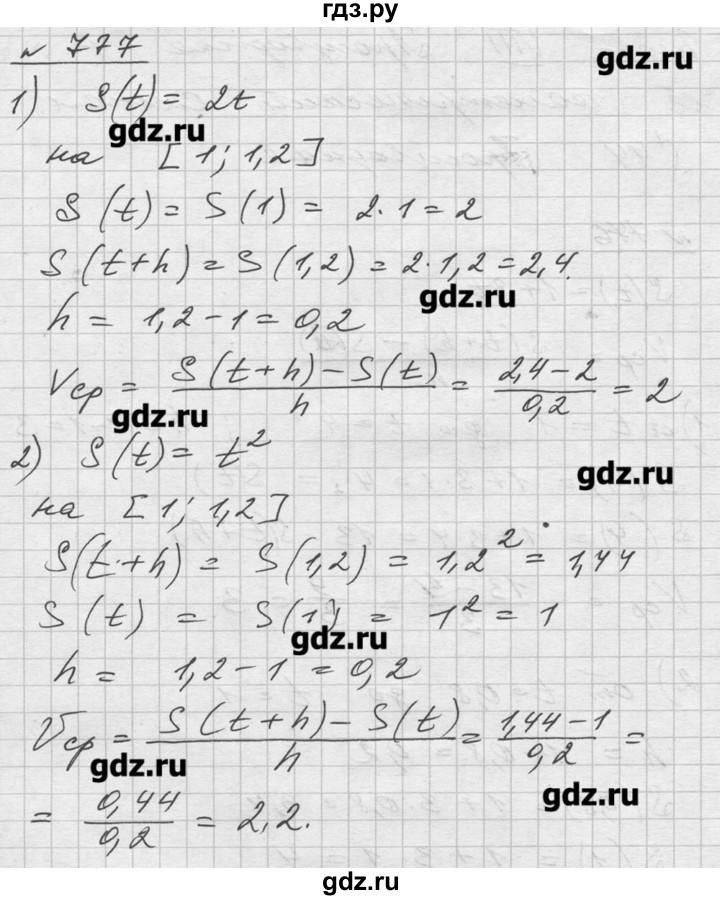 гдз.ру
№ 777
gdz.ru
1) S(t) = 2t
gdz.ru
на [1; 1,2]
S(t) = S(1) = 2·1 = 2
S(t+h) = S(1,2) = 2·1,2 = 2,4.
gdz.ru
h = 1,2 - 1 = 0,2
Vср = (S(t+h) - S(t))/h = (2,4 - 2)/0,2 = 2
gdz.ru
2) S(t) = t²
gdz.ru
на [1; 1,2]
S(t+h) = S(1,2) = 1,2² = 1,44
S(t) = S(1) = 1² = 1
gdz.ru
h = 1,2 - 1 = 0,2
Vср = (S(t+h) - S(t))/h = (1,44 - 1)/0,2 =
gdz.ru
gdz.ru
= 0,44/0,2 = 2,2.
gdz.ru